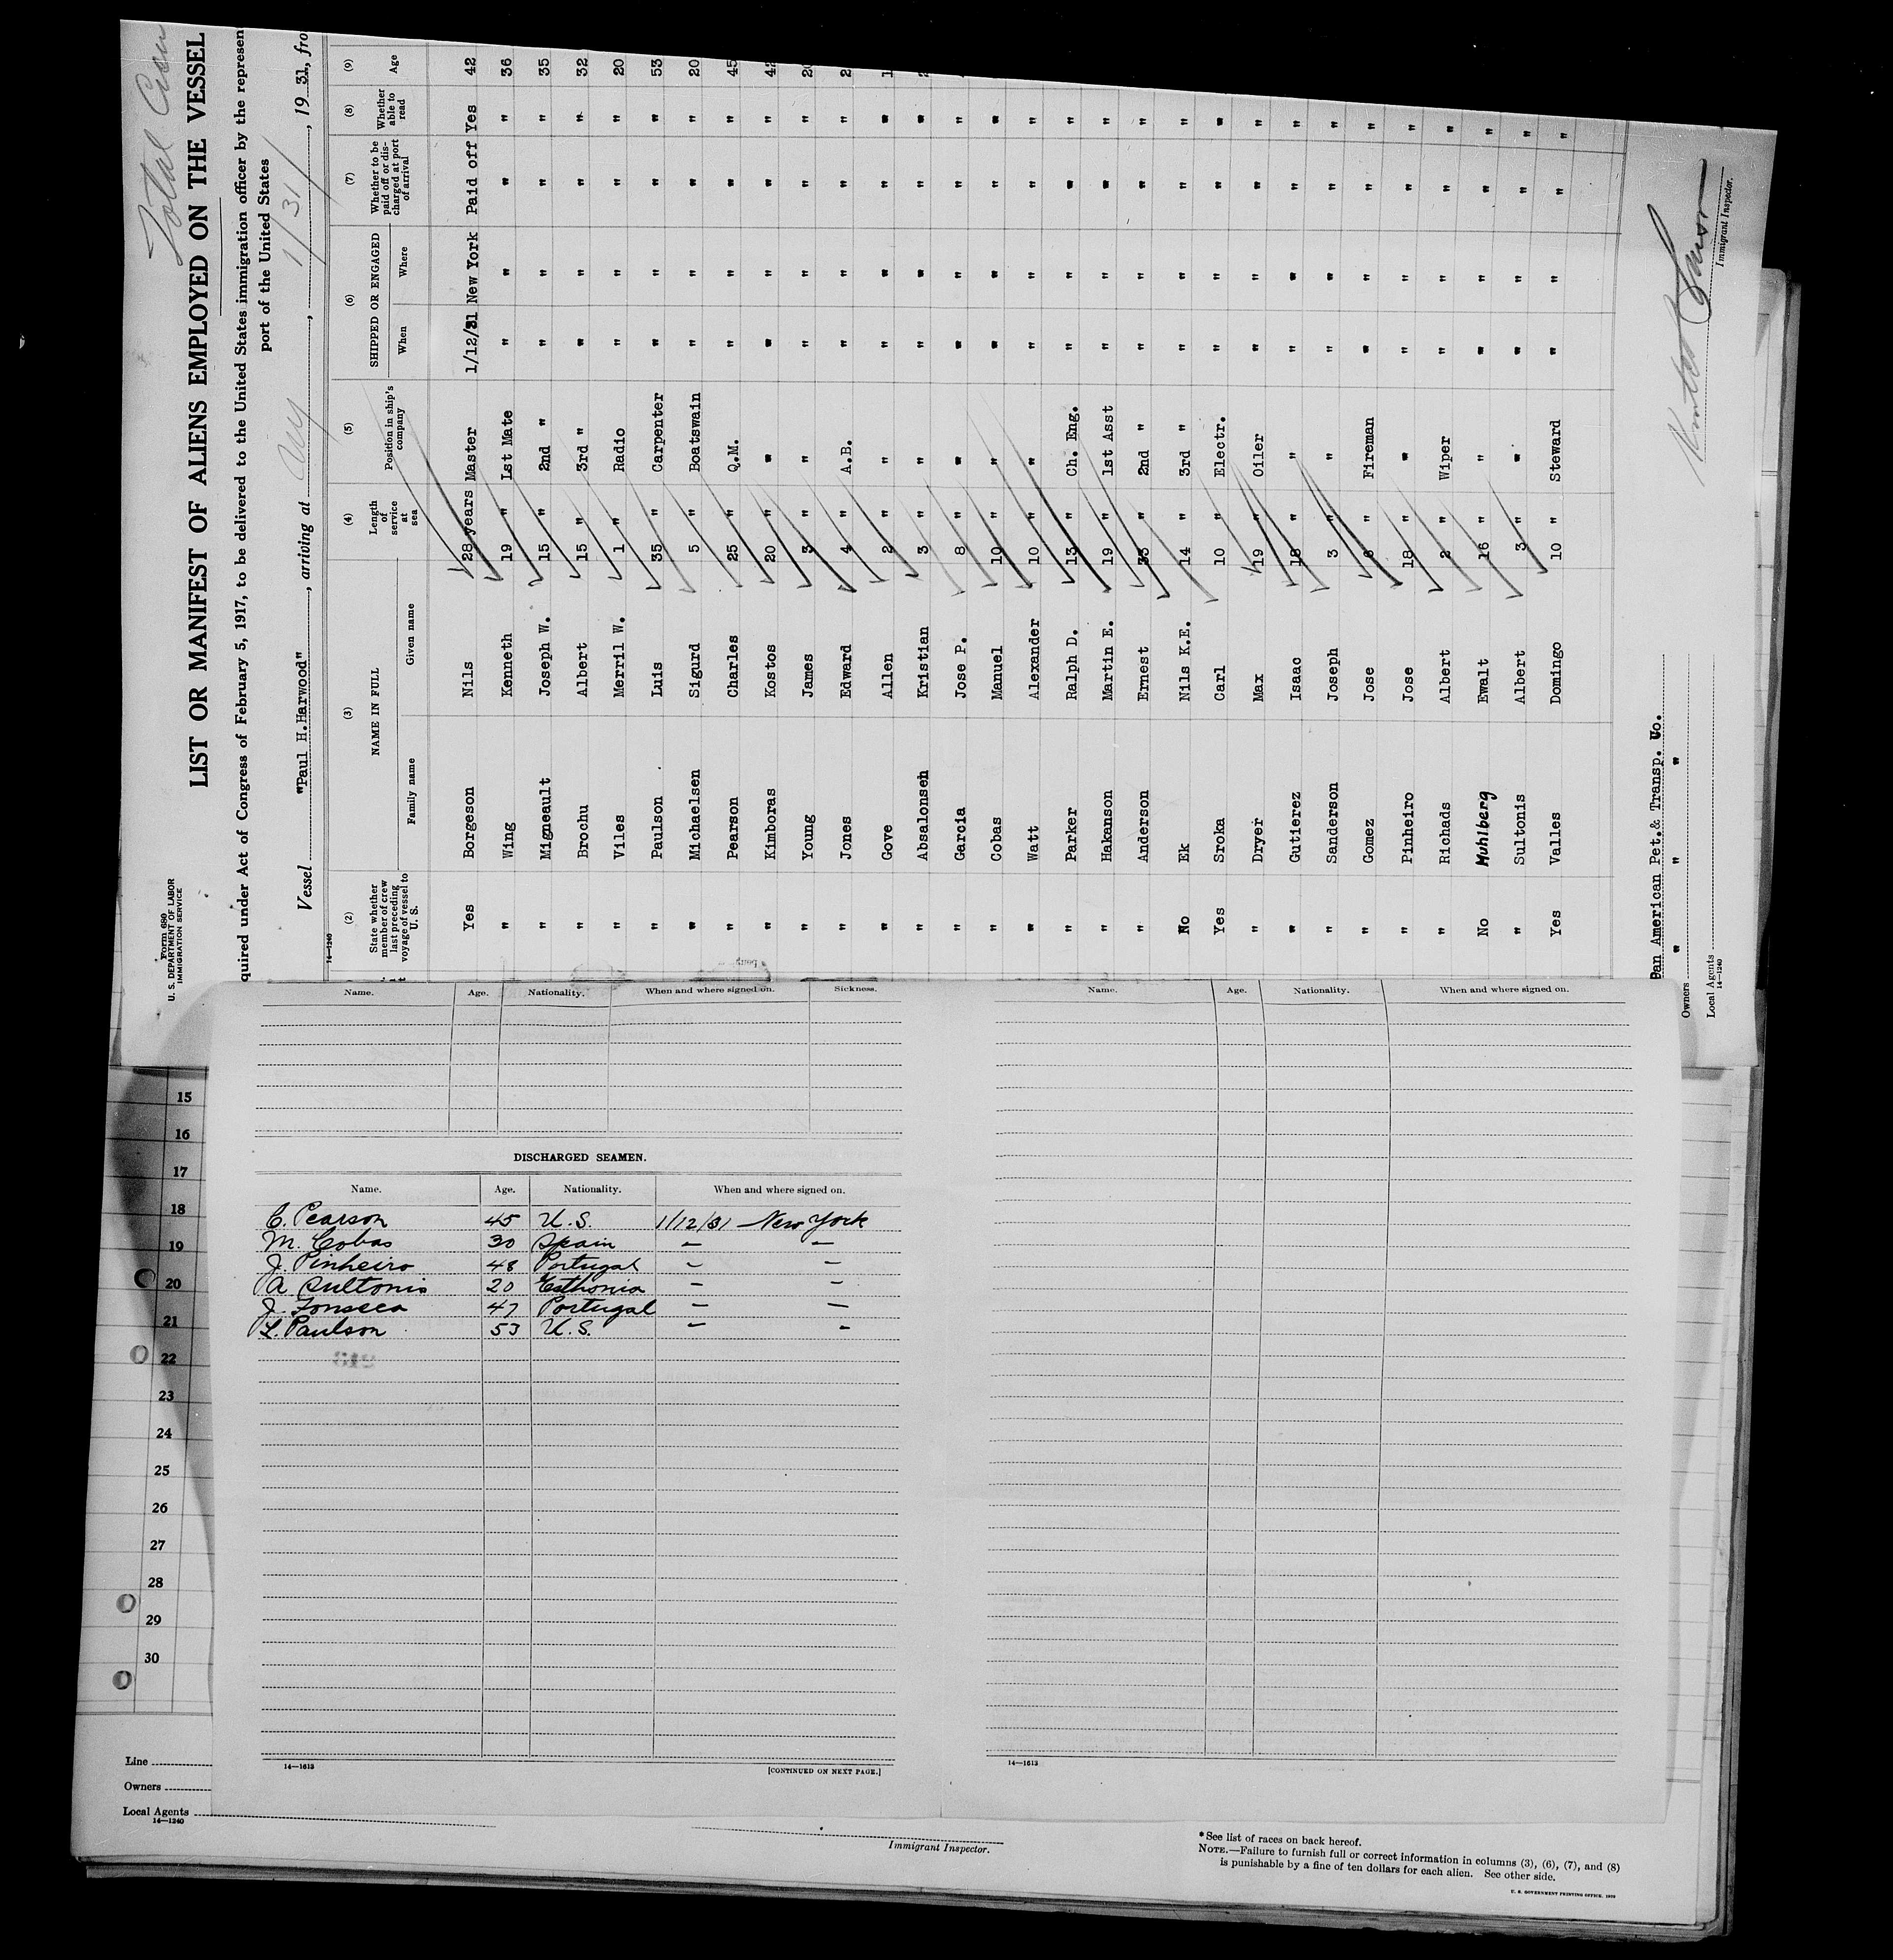 Total Crew
Form 680
U. S. DEPARTMENT OF LABOR
IMMIGRATION SERVICE
LIST OR MANIFEST OF ALIENS EMPLOYED ON THE VESSEL
quired under Act of Congress of February 5, 1917, to be delivered to the United States immigration officer by the represen
port of the United States
Vessel "Paul H.Harwood", arriving at , 1/31/, 19 31, fro
14-1240
(2) (3) (4) (5) (6) (7) (8) (9)
State whether member of crew last preceding voyage of vessel to U. S. NAME IN FULL Family name Given name Length of service at sea Position in ship's company SHIPPED OR ENGAGED When Where Whether to be paid off or discharged at port of arrival Whether able to read Age
Yes Borgeson Nils 28 years Master 1/12/31 New York Paid off Yes 42
" Wing Kenneth 19 " Lst Mate " " " " 36
" Migneault Joseph W. 15 " 2nd " " " " " 35
" Brochu Albert 15 " 3rd " " " " " 32
" Viles Merril W. 1 " Radio " " " " 20
" Paulson Luis 35 " Carpenter " " " " 53
" Michaelsen Sigurd 5 " Boatswain " " " " 20
" Pearson Charles 25 " Q.M. " " " " 45
" Kimboras Kostos 20 " " " " " " 42
" Young James 3 " " " " " " 20
" Jones Edward 4 " A.B. " " " " 2
" Gove Allen 2 " " " " " " 1
" Absalonseh Kristian 3 " " " " " "
" Garcia Jose P. 8 " " " " " "
" Cobas Manuel 10 " " " " " "
" Watt Alexander 10 " " " " " "
" Parker Ralph D. 13 " Ch. Eng. " " " "
" Hakanson Martin E. 19 " 1st Asst " " " "
" Anderson Ernest 33 " 2nd " " " " "
No Ek Nils K.E. 14 " 3rd " " " " "
Yes Sroka Carl 10 " Electr. " " " "
" Dryer Max 19 " Oiler " " " "
" Gutierez Isaac 18 " " " " " "
" Sanderson Joseph 3 " " " " " "
" Gomez Jose 6 " Fireman " " " "
" Pinheiro Jose 18 " " " " " "
" Richads Albert 2 " Wiper " " " "
No Muhlberg Ewalt 16 " " " " " "
" Sultonis Albert 3 " " " " " "
Yes Valles Domingo 10 " Steward " " " "
Pan American Pet.& Transp. Co.
Owners " " "
Local Agents
14-1240
Immigrant Inspector.
Name. Age. Nationality. When and where signed on. Sickness.
DISCHARGED SEAMEN.
Name. Age. Nationality. When and where signed on.
C. Pearson 45 U.S. 1/12/31 New York
M. Cobas 30 Spain — —
J. Pinheiro 48 Portugal — —
A Sultonis 20 Esthonia — —
J. Fonseca 47 Portugal — —
L. Paulson 53 U.S. — -
14—1613 [CONTINUED ON NEXT PAGE.]
Name. Age. Nationality. When and where signed on.
14—1613
15
16
17
18
19
20
21
22
23
24
25
26
27
28
29
30
Line
Owners
Local Agents
14—1240
Immigrant Inspector.
*See list of races on back hereof.
NOTE.—Failure to furnish full or correct information in columns (3), (6), (7), and (8)
is punishable by a fine of ten dollars for each alien. See other side.
U. S. GOVERNMENT PRINTING OFFICE. 1929